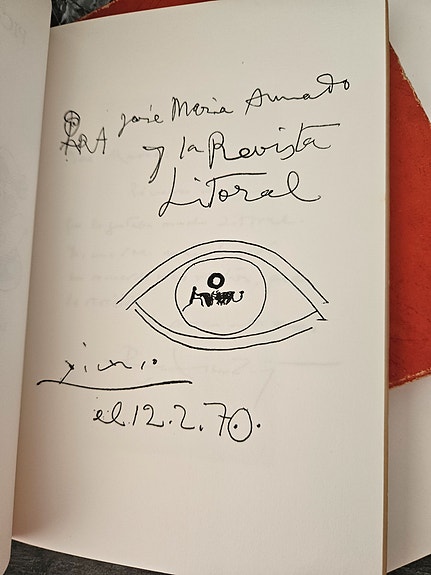 PARA José Maria Amado
y la Revista
Litoral
el 12.2.70.